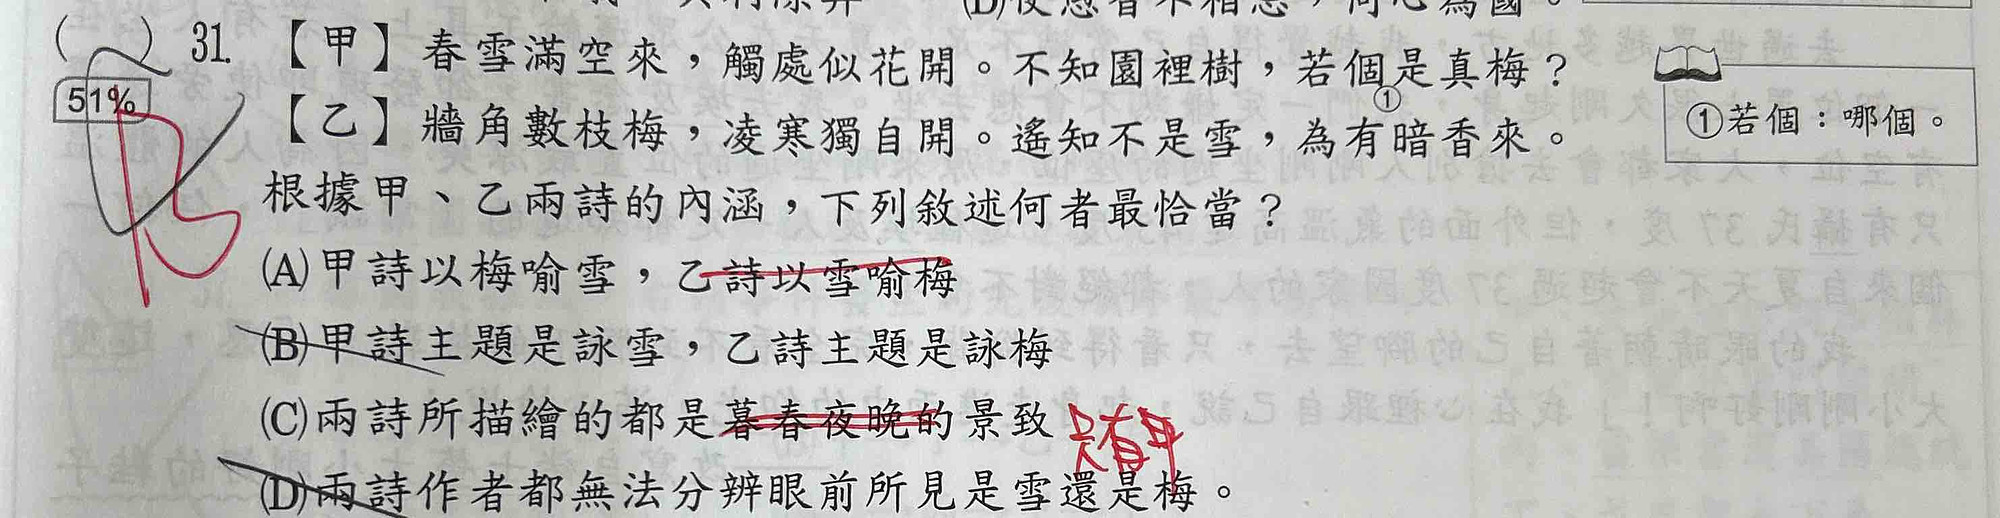 (D)使愚者不相忌，同心為國。
(　)31.【甲】春雪滿空來，觸處似花開。不知園裡樹，若個①是真梅？
51%
【乙】牆角數枝梅，凌寒獨自開。遙知不是雪，為有暗香來。
①若個：哪個。
根據甲、乙兩詩的內涵，下列敘述何者最恰當？
(A)甲詩以梅喻雪，乙詩以雪喻梅
(B)甲詩主題是詠雪，乙詩主題是詠梅
(C)兩詩所描繪的都是暮春夜晚的景致
只有甲
(D)兩詩作者都無法分辨眼前所見是雪還是梅。